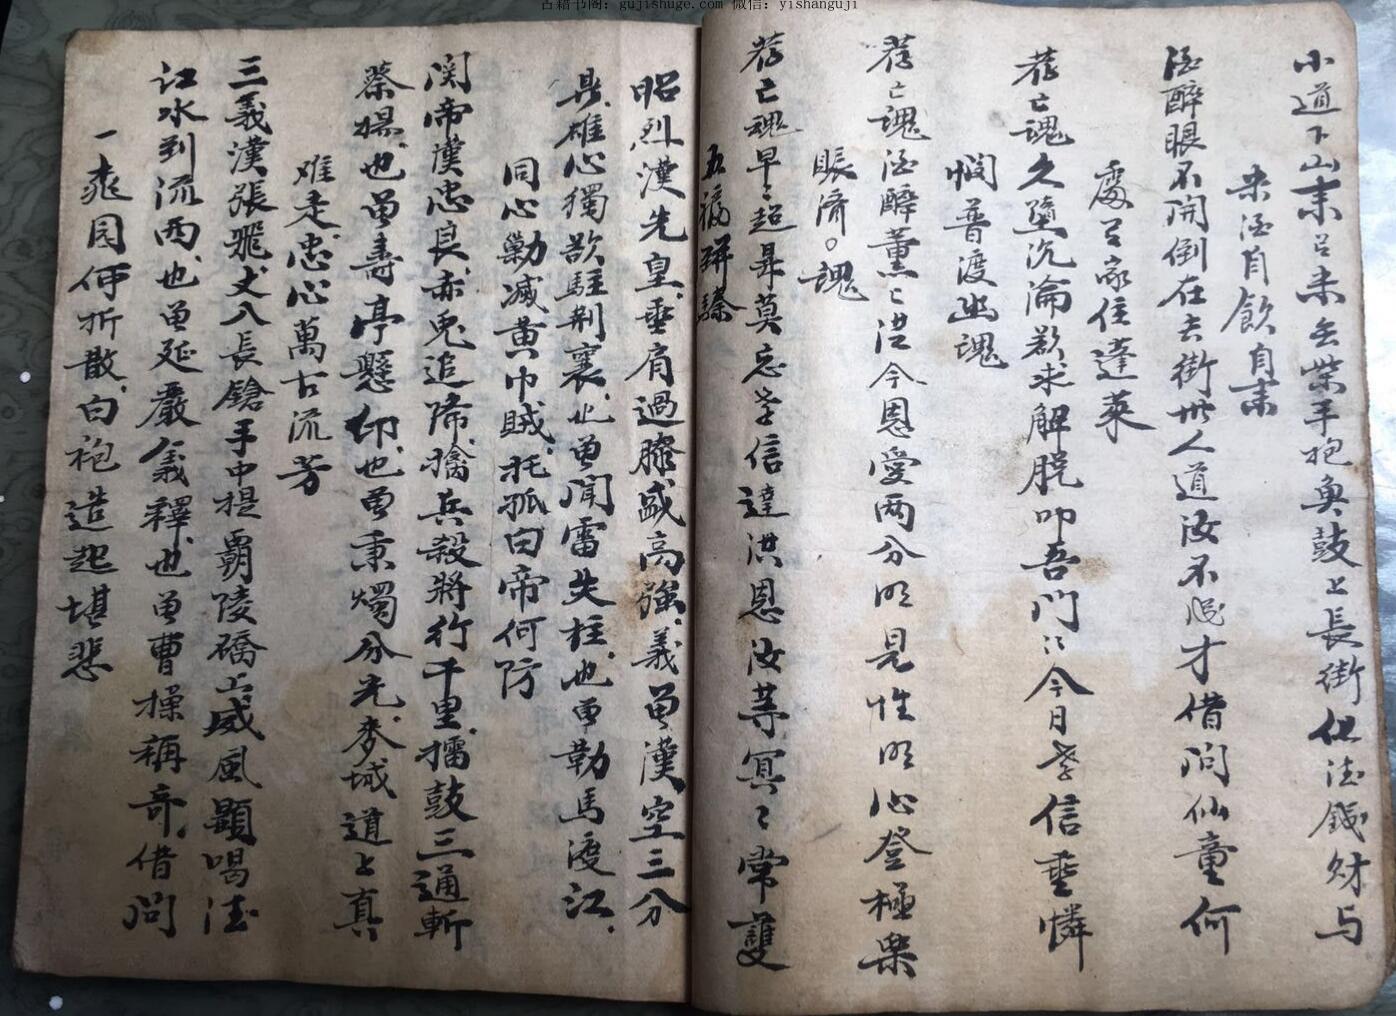 古籍书阁：gujishuge.com 微信：yishanguji
小道下山来呂未無柴手抱魚鼓上長街化淂錢财与
来酒自飲自来
酒醉眼不開倒在去街世人道汝不成才借問仙童何
處是家住蓬莱
荐亡魂久墮沉淪欲求解脱叩吾門江今日孝信垂憐
憫普渡幽魂
荐亡魂酒醉薰〻洪今恩愛两分明見性明心登極樂
賑济。魂
荐亡魂早〻超昇莫忘孝信達洪恩汝等冥〻常護
五福駢臻
昭烈漢先皇、垂肩過膝威高強、義曾漢室三分
鼎、雄心獨欲駐荆襄、也曾聞雷失柱、也曾勒馬渡江、
同心勦滅黄巾賊、托孤白帝何防
関帝漢忠良、赤兎追蹄、擒兵殺將行千里、擂鼓三通斬
蔡揚、也曾壽亭懸印、也曾秉燭分光、麥城道上真
难走、忠心萬古流芳
三義漢張飛、丈八長鎗手中提、霸陵橋上威風顯喝淂
江水到流西、也曾延嚴義釋、也曾曹操稱奇、借問
一桃園伊折散、白袍造起堪悲